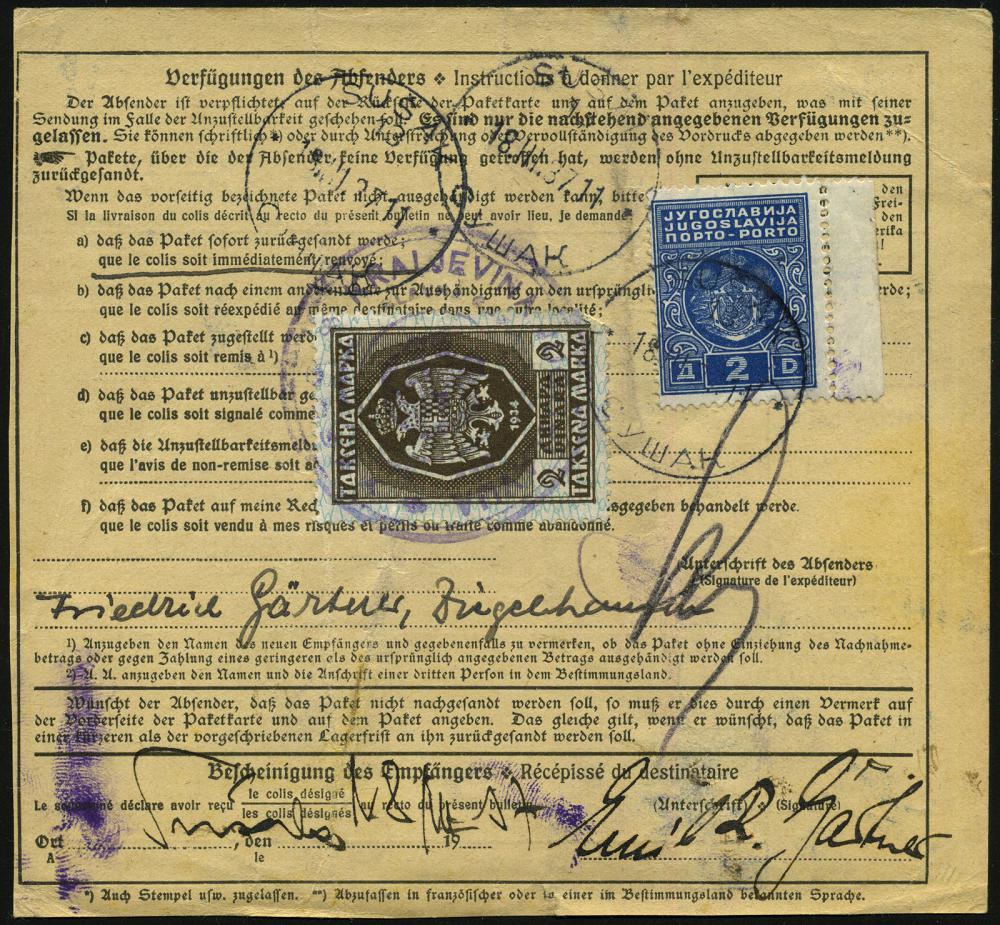 Verfügungen des Absenders ⬥ Instructions à donner par l'expéditeur
Der Absender ist verpflichtet, auf der Rückseite der Paketkarte und auf dem Paket anzugeben, was mit seiner
Sendung im Falle der Unzustellbarkeit geschehen soll. Es sind nur die nachstehend angegebenen Verfügungen zu-
gelassen. Sie können schriftlich*) oder durch Unterstreichung oder Vervollständigung des Vordrucks abgegeben werden**).
Pakete, über die der Absender keine Verfügung getroffen hat, werden ohne Unzustellbarkeitsmeldung
zurückgesandt.
Wenn das vorseitig bezeichnete Paket nicht ausgehändigt werden kann, bitte
Si la livraison du colis décrit au recto du présent bulletin ne peut avoir lieu, je demande
den
Frei-
den
erika
a) daß das Paket sofort zurückgesandt werde;
que le colis soit immédiatement renvoyé;
b) daß das Paket nach einem anderen Orte zur Aushändigung an den ursprüngli
erde;
que le colis soit réexpédié au même destinataire dans une autre localité;
c) daß das Paket zugestellt werd
que le colis soit remis à ¹)
d) daß das Paket unzustellbar ge
que le colis soit signalé comme
e) daß die Unzustellbarkeitsmeldu
que l'avis de non-remise soit ad
f) daß das Paket auf meine Rec
sgegeben behandelt werde.
que le colis soit vendu à mes risques et périls ou traité comme abandonné.
SUŠAK
18.III.37.11
СУШАК
SUŠAK
18.III.37.11
СУШАК
KRALJEVINA
ЈУГОСЛАВИЈА
JUGOSLAVIJA
ПОРТО-PORTO
Д 2 D
SUŠAK
18
СУШАК
ТАКСЕНА МАРКА
1934
2 ДИНАРА DINARA 2
TAKSENA MARKA
Unterschrift des Absenders
(Signature de l'expéditeur)
Friedrich Gärtner,
1) Anzugeben den Namen des neuen Empfängers und gegebenenfalls zu vermerken, ob das Paket ohne Einziehung des Nachnahme-
betrags oder gegen Zahlung eines geringeren als des ursprünglich angegebenen Betrags ausgehändigt werden soll.
2) U. A. anzugeben den Namen und die Anschrift einer dritten Person in dem Bestimmungsland.
Wünscht der Absender, daß das Paket nicht nachgesandt werden soll, so muß er dies durch einen Vermerk auf
der Vorderseite der Paketkarte und auf dem Paket angeben. Das gleiche gilt, wenn er wünscht, daß das Paket in
einer kürzeren als der vorgeschriebenen Lagerfrist an ihn zurückgesandt werden soll.
Bescheinigung des Empfängers ⬥ Récépissé du destinataire
Le soussigné déclare avoir reçu le colis désigné / les colis désignés au recto du présent bulletin
(Unterschrift) (Signature)
Ort , den 18/III 1937
A le
Gärtner
*) Auch Stempel usw. zugelassen. **) Abzufassen in französischer oder in einer im Bestimmungsland bekannten Sprache.